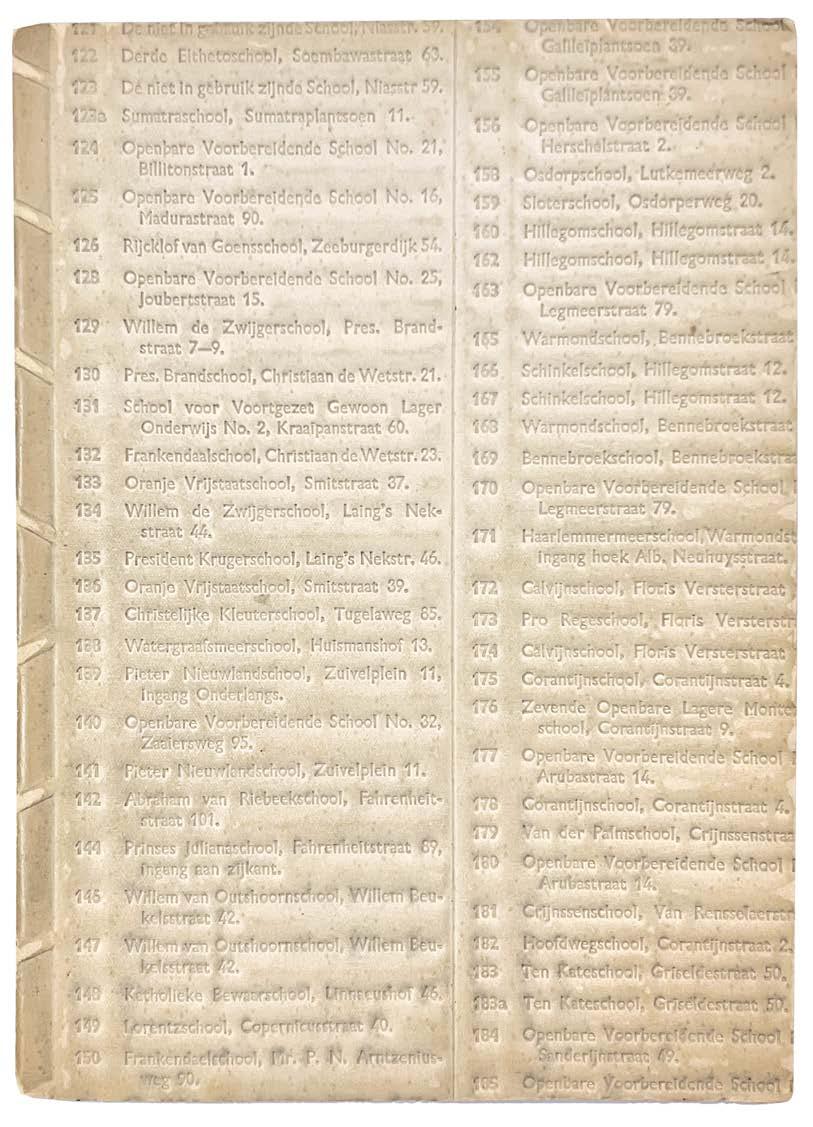 121 De niet in gebruik zijnde School, Niasstr. 59.
122 Derde Elthetoschool, Soembawastraat 63.
123 De niet in gebruik zijnde School, Niasstr 59.
123a Sumatraschool, Sumatraplantsoen 11.
124 Openbare Voorbereidende School No. 21,
Billitonstraat 1.
125 Openbare Voorbereidende School No. 16,
Madurastraat 90.
126 Rijcklof van Goensschool, Zeeburgerdijk 54.
128 Openbare Voorbereidende School No. 25,
Joubertstraat 15.
129 Willem de Zwijgerschool, Pres. Brand-
straat 7—9.
130 Pres. Brandschool, Christiaan de Wetstr. 21.
131 School voor Voortgezet Gewoon Lager
Onderwijs No. 2, Kraaipanstraat 60.
132 Frankendaalschool, Christiaan de Wetstr. 23.
133 Oranje Vrijstaatschool, Smitstraat 37.
134 Willem de Zwijgerschool, Laing's Nek-
straat 44.
135 President Krugerschool, Laing's Nekstr. 46.
136 Oranje Vrijstaatschool, Smitstraat 39.
137 Christelijke Kleuterschool, Tugelaweg 85.
138 Watergraafsmeerschool, Huismanshof 13.
139 Pieter Nieuwlandschool, Zuivelplein 11,
Ingang Onderlangs.
140 Openbare Voorbereidende School No. 32,
Zaaiersweg 95.
141 Pieter Nieuwlandschool, Zuivelplein 11.
142 Abraham van Riebeekschool, Fahrenheit-
straat 101.
144 Prinses Julianaschool, Fahrenheitstraat 89,
ingang aan zijkant.
145 Willem van Outshoornschool, Willem Beu-
kelsstraat 42.
147 Willem van Outshoornschool, Willem Beu-
kelsstraat 42.
148 Katholieke Bewaarschool, Linnaeushof 46.
149 Lorentzschool, Copernicusstraat 40.
150 Frankendaelschool, Mr. P. N. Arntzenius-
weg 90.
154 Openbare Voorbereidende School
Galileïplantsoen 39.
155 Openbare Voorbereidende School
Galileïplantsoen 39.
156 Openbare Voorbereidende School
Herschelstraat 2.
158 Osdorpschool, Lutkemeerweg 2.
159 Sloterschool, Osdorperweg 20.
160 Hillegomschool, Hillegomstraat 14.
162 Hillegomschool, Hillegomstraat 14.
163 Openbare Voorbereidende School
Legmeerstraat 79.
165 Warmondschool, Bennebroekstraat
166 Schinkelschool, Hillegomstraat 12.
167 Schinkelschool, Hillegomstraat 12.
168 Warmondschool, Bennebroekstraat
169 Bennebroekschool, Bennebroekstraa
170 Openbare Voorbereidende School
Legmeerstraat 79.
171 Haarlemmermeerschool, Warmondst
ingang hoek Alb. Neuhuysstraat.
172 Calvijnschool, Floris Versterstraat
173 Pro Regeschool, Floris Versterstr
174 Calvijnschool, Floris Versterstraat
175 Corantijnschool, Corantijnstraat 4.
176 Zevende Openbare Lagere Monte
school, Corantijnstraat 9.
177 Openbare Voorbereidende School
Arubastraat 14.
178 Corantijnschool, Corantijnstraat 4.
179 Van der Palmschool, Crijnssenstraa
180 Openbare Voorbereidende School
Arubastraat 14.
181 Crijnssenschool, Van Rensselaerstr
182 Hoofdwegschool, Corantijnstraat 2.
183 Ten Kateschool, Griseldestraat 50.
183a Ten Kateschool, Griseldestraat 50.
184 Openbare Voorbereidende School
Sanderijnstraat 49.
185 Openbare Voorbereidende School